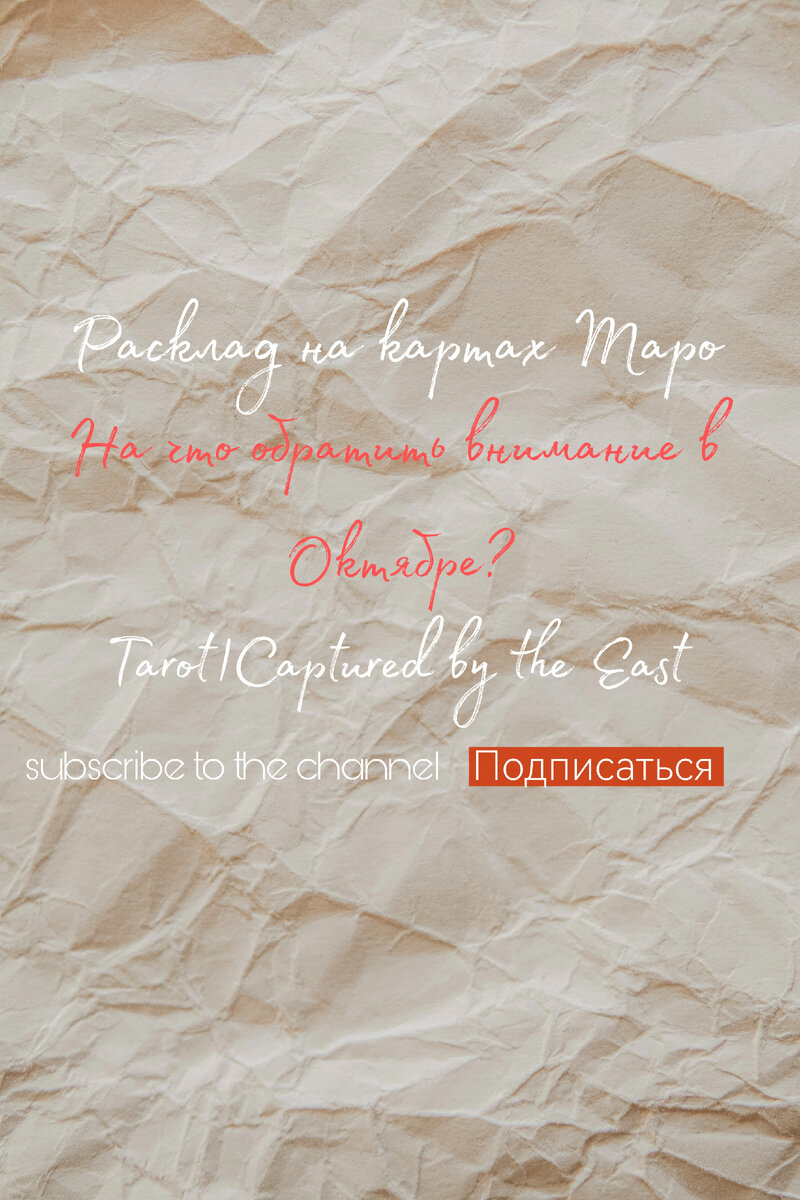 Расклад на картах Таро
На что обратить внимание в
Октябре?
Tarot|Captured by the East
subscribe to the channel Подписаться